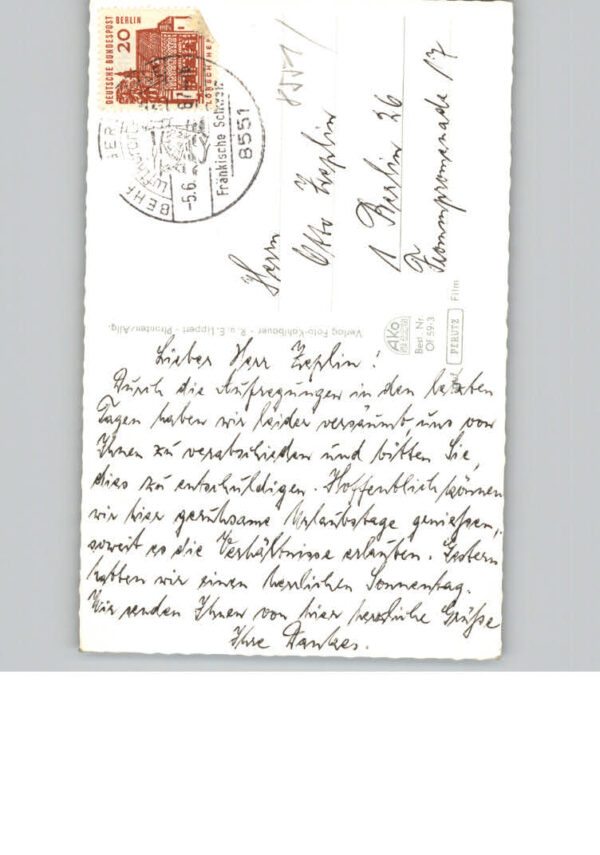 DEUTSCHE BUNDESPOST BERLIN
20
-5.6.
Fränkische Schweiz
8551
8551
Herrn
Otto Zeplin
1 Berlin 26
Verlag Foto-Kahlbauer - R. u. E. Lippert - Pfronten/Allg.
AKO
Best.-Nr.
Of 59-3
auf PERUTZ Film
Lieber Herr Zeplin!
Durch die Aufregungen in den letzten
Tagen haben wir leider versäumt, uns von
Ihnen zu verabschieden und bitten Sie,
dies zu entschuldigen. Hoffentlich können
wir hier geruhsame Urlaubstage genießen,
soweit es die Verhältnisse erlauben. Gestern
hatten wir einen herrlichen Sonnentag.
Wir senden Ihnen von hier herzliche Grüße
Ihre